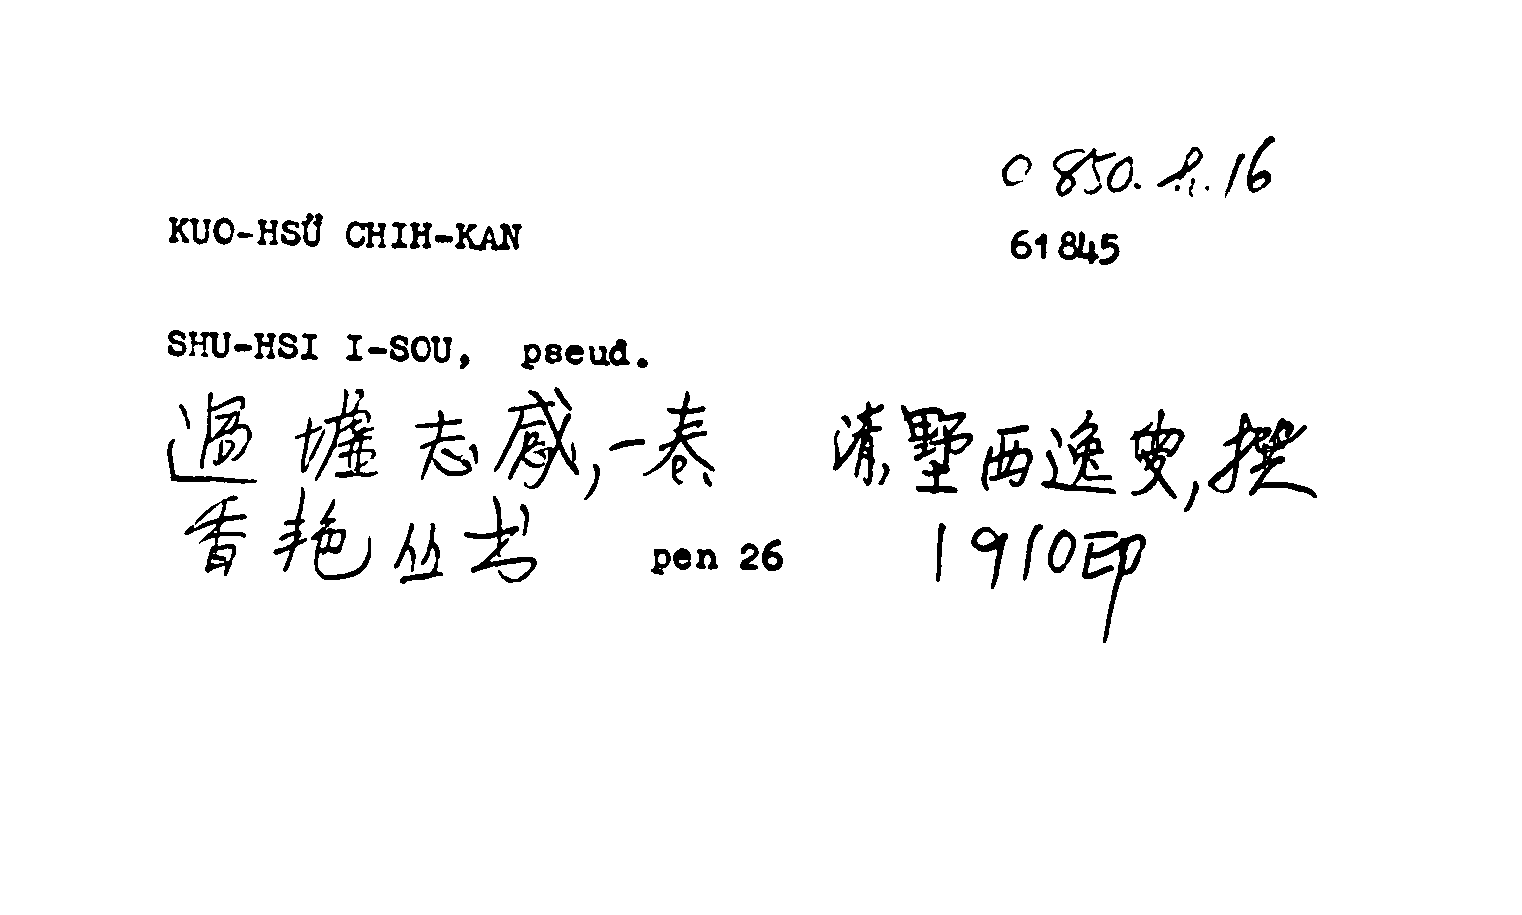 0 850.8.16
KUO-HSÜ CHIH-KAN
61845
SHU-HSI I-SOU, pseud.
過墟志感,一卷 清,墅西逸叟,撰
香艳丛书 pen 26 1910印